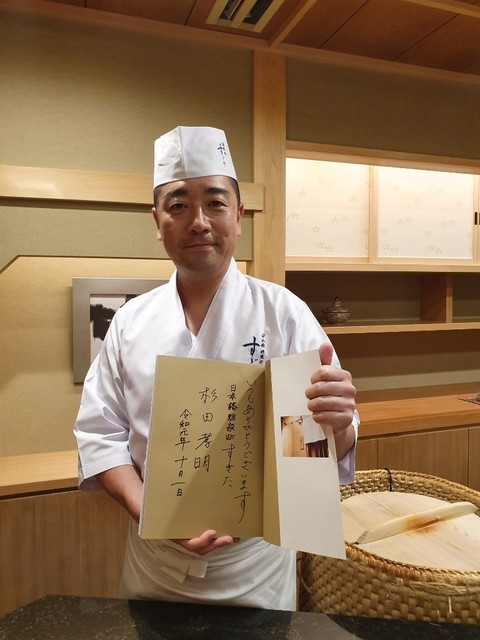 いつもありがとうございます
日本橋蛎殻町 すぎた
杉田孝明
令和元年十月一日
日本橋 蛎殻町
すぎ